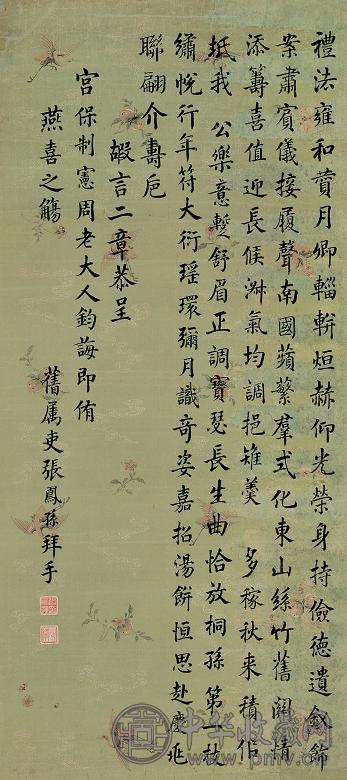 禮法雍和蕡月卿輜軿烜赫仰光榮身持儉德遺釵飾
案肅賓儀接履聲南國蘋蘩羣式化東山絲竹舊關情
添籌喜值迎長候淋氣均調挹雉羹 多稼秋來積佀
坻我 公樂意蹔舒眉正調寶瑟長生曲恰放桐孫第一枝
繡帨行年符大衍瑶環彌月識奇姿嘉招湯餅恒思赴慶兆
聯翩介壽卮
嘏言二章恭呈
宫保制憲周老大人鈞誨即侑
燕喜之觴
舊屬吏張鳳孫拜手
中华收藏网
www.pmw.com